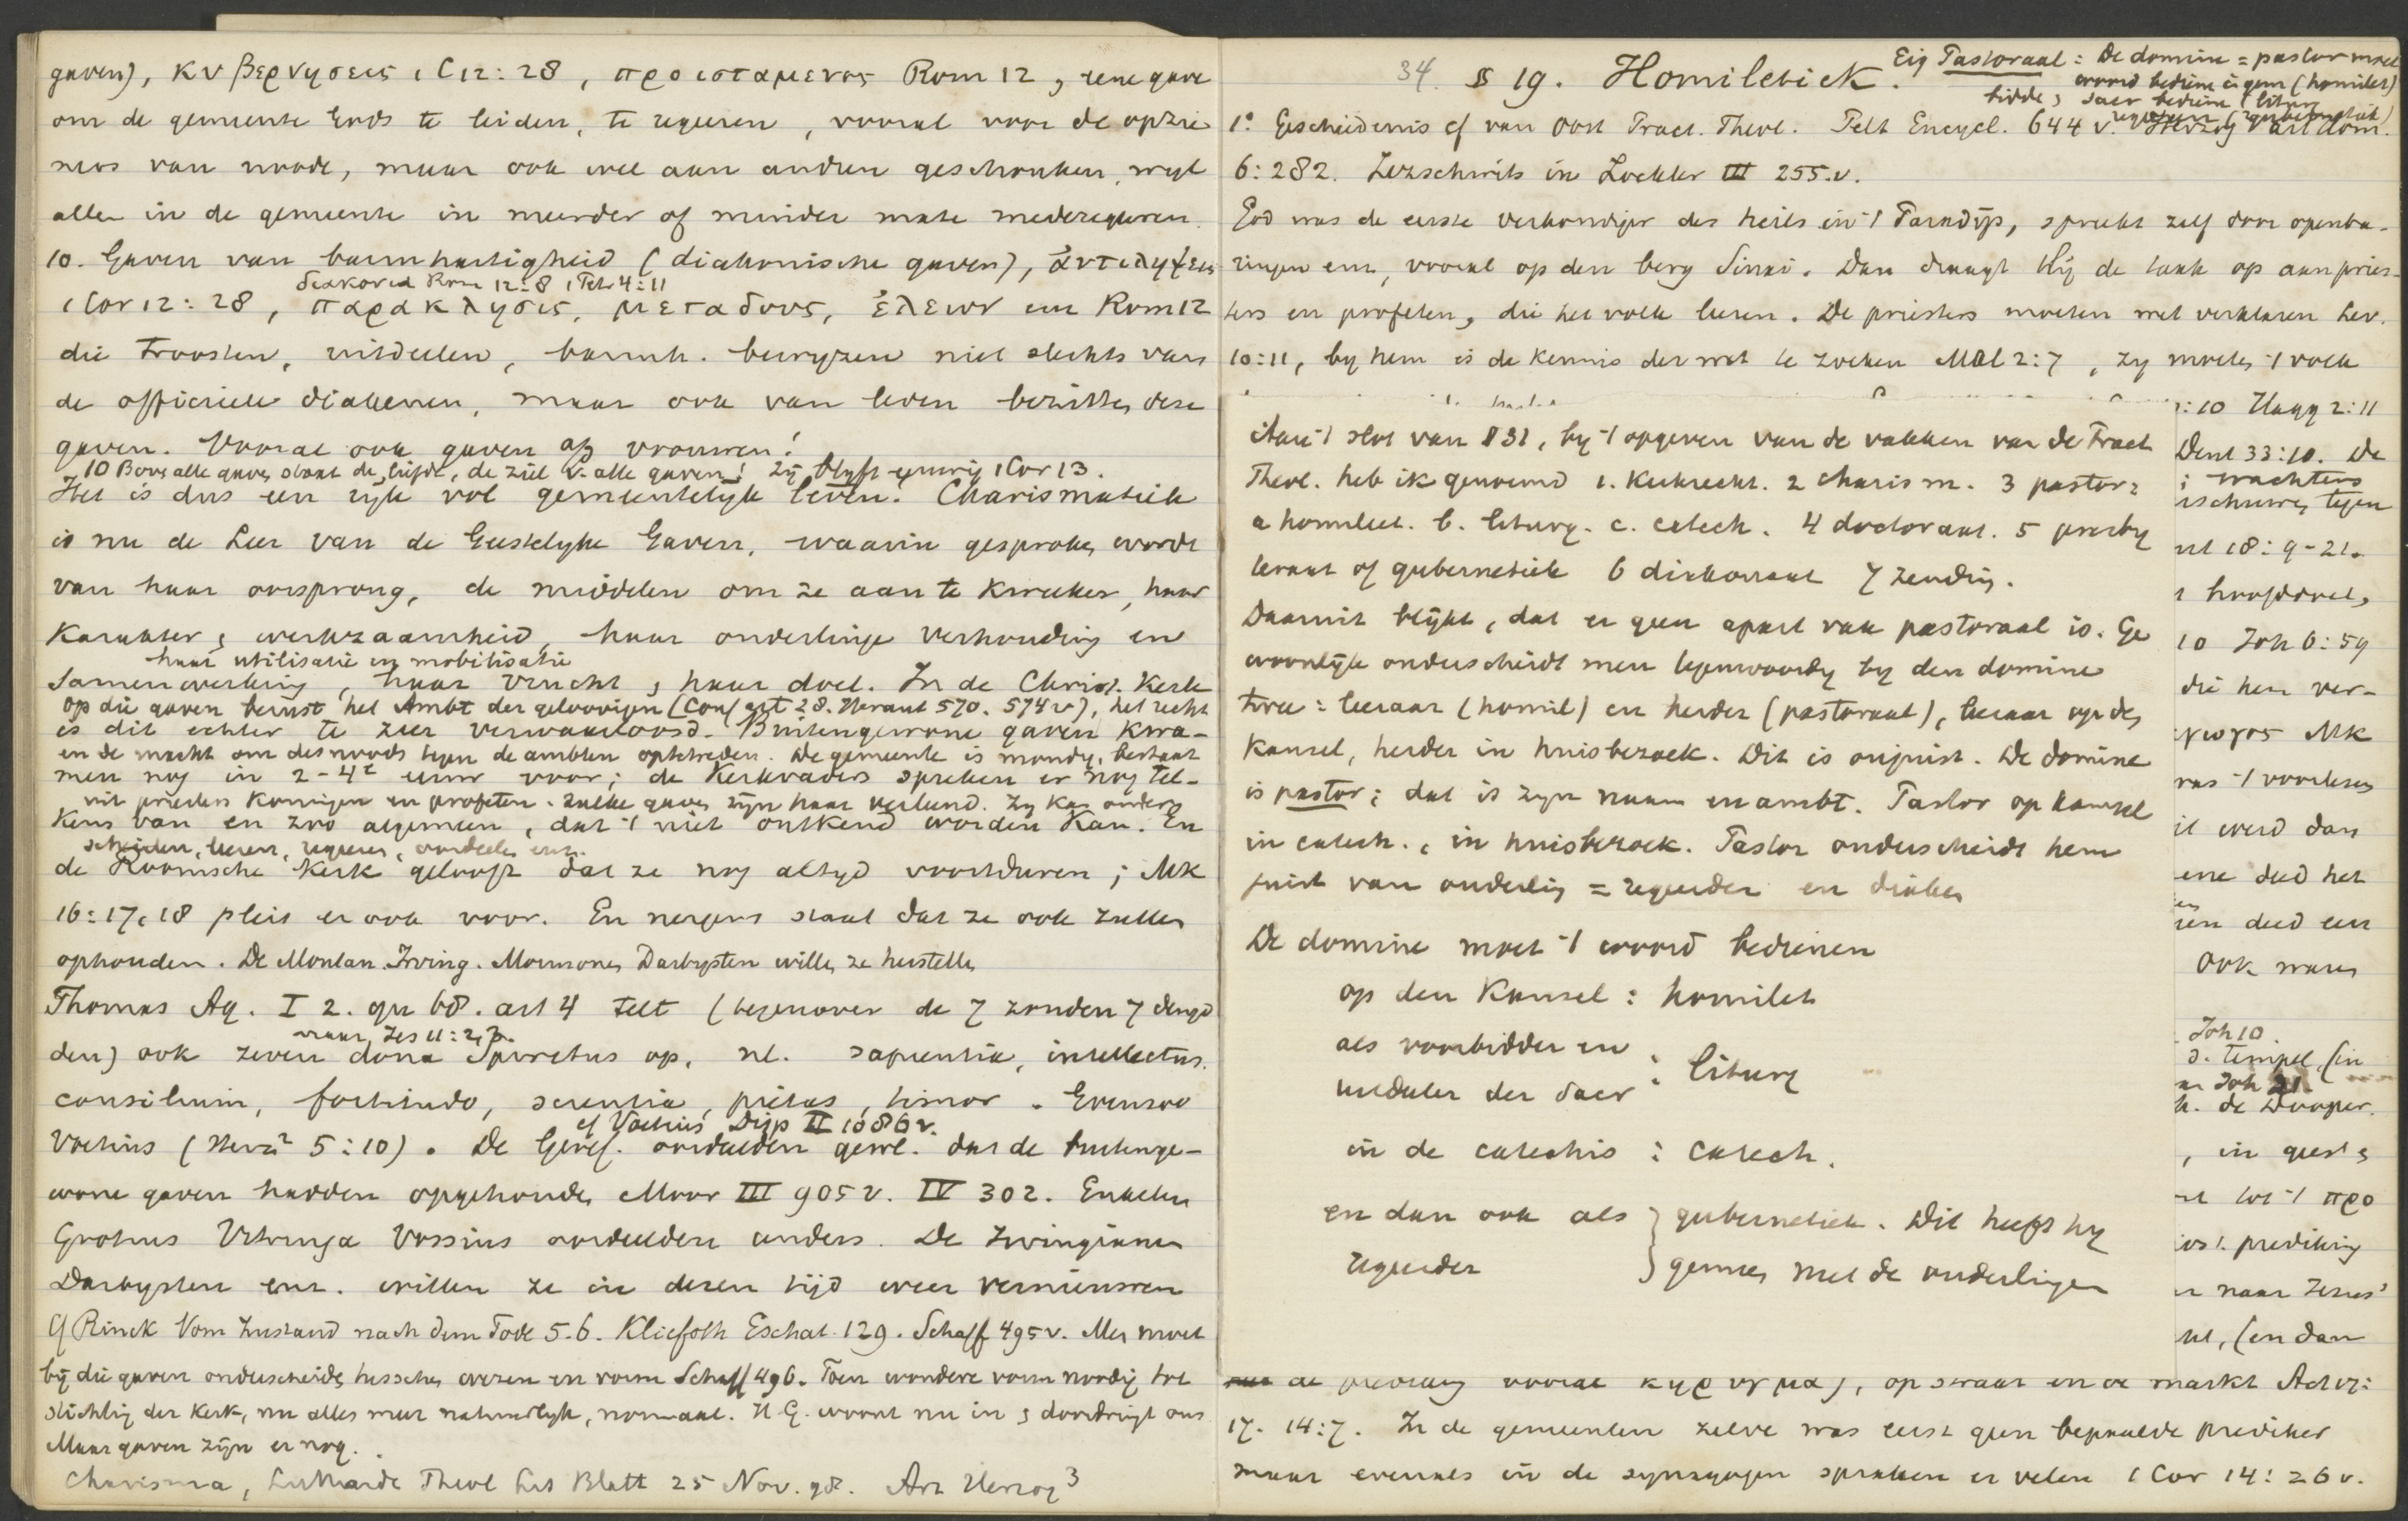 gaven), κυβερνησεις 1 C 12:28, προισταμενος Rom 12, eene gave
om de gemeente Gods te leiden, te regeren, vooral voor de opzie
ners van noode, maar ook wel aan anderen geschonken, wijl
allen in de gemeente in meerder of minder mate mederegeren.
10. Gaven van barmhartigheid (diakonische gaven), ἀντιληψεις
διακονια Rom 12:8 1 Petr 4:11
1 Cor 12:28, παρακλησις, μεταδους, ἐλεων enz Rom 12
die troosten, uitdeelen, barmh. bewyzen niet slechts van
de officieele diakenen, maar ook van leden bezitten deze
gaven. Vooral ook gaven op vrouwen!
10 Boven alle gaven staat de liefde, de ziel v. alle gaven! Zij blijft eeuwig 1 Cor 13.
Het is dus een ryk vol gemeentelyk leven. Charismatiek
is nu de Leer van de Geestelyke Gaven, waarin gesproken wordt
van haar oorsprong, de middelen om ze aan te kweeken, haar
karakter & werkzaamheid, haar onderlinge verhouding en
haar utilisatie en mobilisatie
samenwerking, haar vrucht & haar doel. In de Christ. Kerk
op die gaven berust het Ambt der geloovigen (Conf art 28. Heraut 570. 574 v), het recht
is dit echter te zeer verwaarloosd. Buitengewone gaven kwa-
en de macht om desnoods tegen de ambten optetreden. De gemeente is mondig, bestaat
men nog in 2-4e eeuw voor; de Kerkvaders spreken er nog tel-
uit priesters koningen en profeten. Zulke gaven zijn haar verleend. Zy kan onder
kens van en zoo algemeen, dat 't niet ontkend worden kan. En
scheiden, leeren, regeeren, oordeelen enz.
de Roomsche Kerk gelooft dat ze nog altyd voortduren; Mk
16:17, 18 pleit er ook voor. En nergens staat dat ze ook zullen
ophouden. De Montan. Irving. Mormonen Darbysten willen ze herstellen
Thomas Aq. I 2. qu 68. art 4 telt (tegenover de 7 zonden 7 deugd
naar Jes 11:2, 3.
den) ook zeven dona Spiritus op, nl. sapientia, intellectus,
consilium, fortitudo, scientia, pietas, timor. Evenzoo
cf Voetius Disp II 1086 v.
Voetius (Herz² 5:10). De Geref. oordeelden gew. dat de buitenge-
wone gaven hadden opgehouden Moor III 905 v. IV 302. Enkelen
Grotius Vitringa Vossius oordeelden anders. De Irvingianen
Darbysten enz. willen ze in dezen tijd weer vernieuwen
Cf Rinck Vom Zustand nach dem Tode 5.6. Kliefoth Eschat. 129. Schaff 495 v. Men moet
bij die gaven onderscheiden tusschen wezen en vorm Schaff 496. Toen wondere vorm noodig tot
stichting der kerk, nu alles meer natuurlyk, normaal. H G. woont nu in & doordringt ons
Maar gaven zijn er nog.
Charisma, Luthardt Theol Lit Blatt 25 Nov. 98. Art Herzog³
34. § 19. Homiletiek.
Eig Pastoraal: De domine = pastor moet
woord bedienen in gem (homilet)
bidde, sacr bedienen (liturg
regeeren (gubernetiek)
1°. Geschiedenis cf van Oost Pract. Theol. Pelt Encycl. 644 v. Herzog² art Hom.
6:282. Zezschwitz in Zockler III 255.v.
God was de eerste verkondiger des heils in 't Paradijs, spreekt zelf door openba-
ringen enz, vooral op den berg Sinai. Dan draagt Hij de taak op aan pries-
ters en profeten, die het volk leeren. De priesters moeten wet verklaren Lev.
10:11, by hem is de kennis der wet te zoeken Mal 2:7, zy moeten 't volk
Aan 't slot van § 31, by 't opgeven van de vakken van de Pract
Theol. heb ik genoemd 1. Kerkrecht. 2 Charism. 3 pastor:
a homilet. b. liturg. c. catech. 4 doctoraat. 5 presby
teraat of gubernetiek 6 diakonaat 7 zending.
Daaruit blijkt, dat er geen apart vak pastoraal is. Ge
woonlijk onderscheidt men tegenwoordig by den domine
twee: leeraar (homil) en herder (pastoraal), leeraar op den
kansel, herder in huisbezoek. Dit is onjuist. De domine
is pastor; dat is zyn naam en ambt. Pastor op kansel
in catech., in huisbezoek. Pastor onderscheidt hem
juist van ouderling = regeerder en diaken
De domine moet 't woord bedienen
op den Kansel: homilet
als voorbidder en
uitdeeler der sacr : liturg
in de catechis : catech.
en dan ook als } gubernetiek. Dit heeft hy
regeerder } gemeen met de ouderlingen
:10 Hagg 2:11
Deut 33:10. De
; wachters
ischuwen tegen
ut 18:9-21.
hoofddoel,
10 Joh 6:59
die hen ver-
γωγος Mk
ras 't voorlezen
it werd dan
ene deed het
en deed een
Ook waren
Joh 10.
d. tempel, (in
Joh 21.
h. de Dooper.
, in geest &
tot 't προ
os t. prediking
naar Jezus'
ht, (en dan
de prediking vooral κηρυγμα), op straat en de markt Act 17:
17. 14:7. In de gemeenten zelve was eerst geen bepaalde prediker
maar evenals in de synagogen spraken er velen 1 Cor 14:26 v.